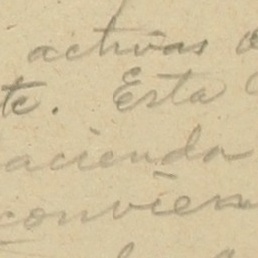 activas
te. Esta
acienda
convien